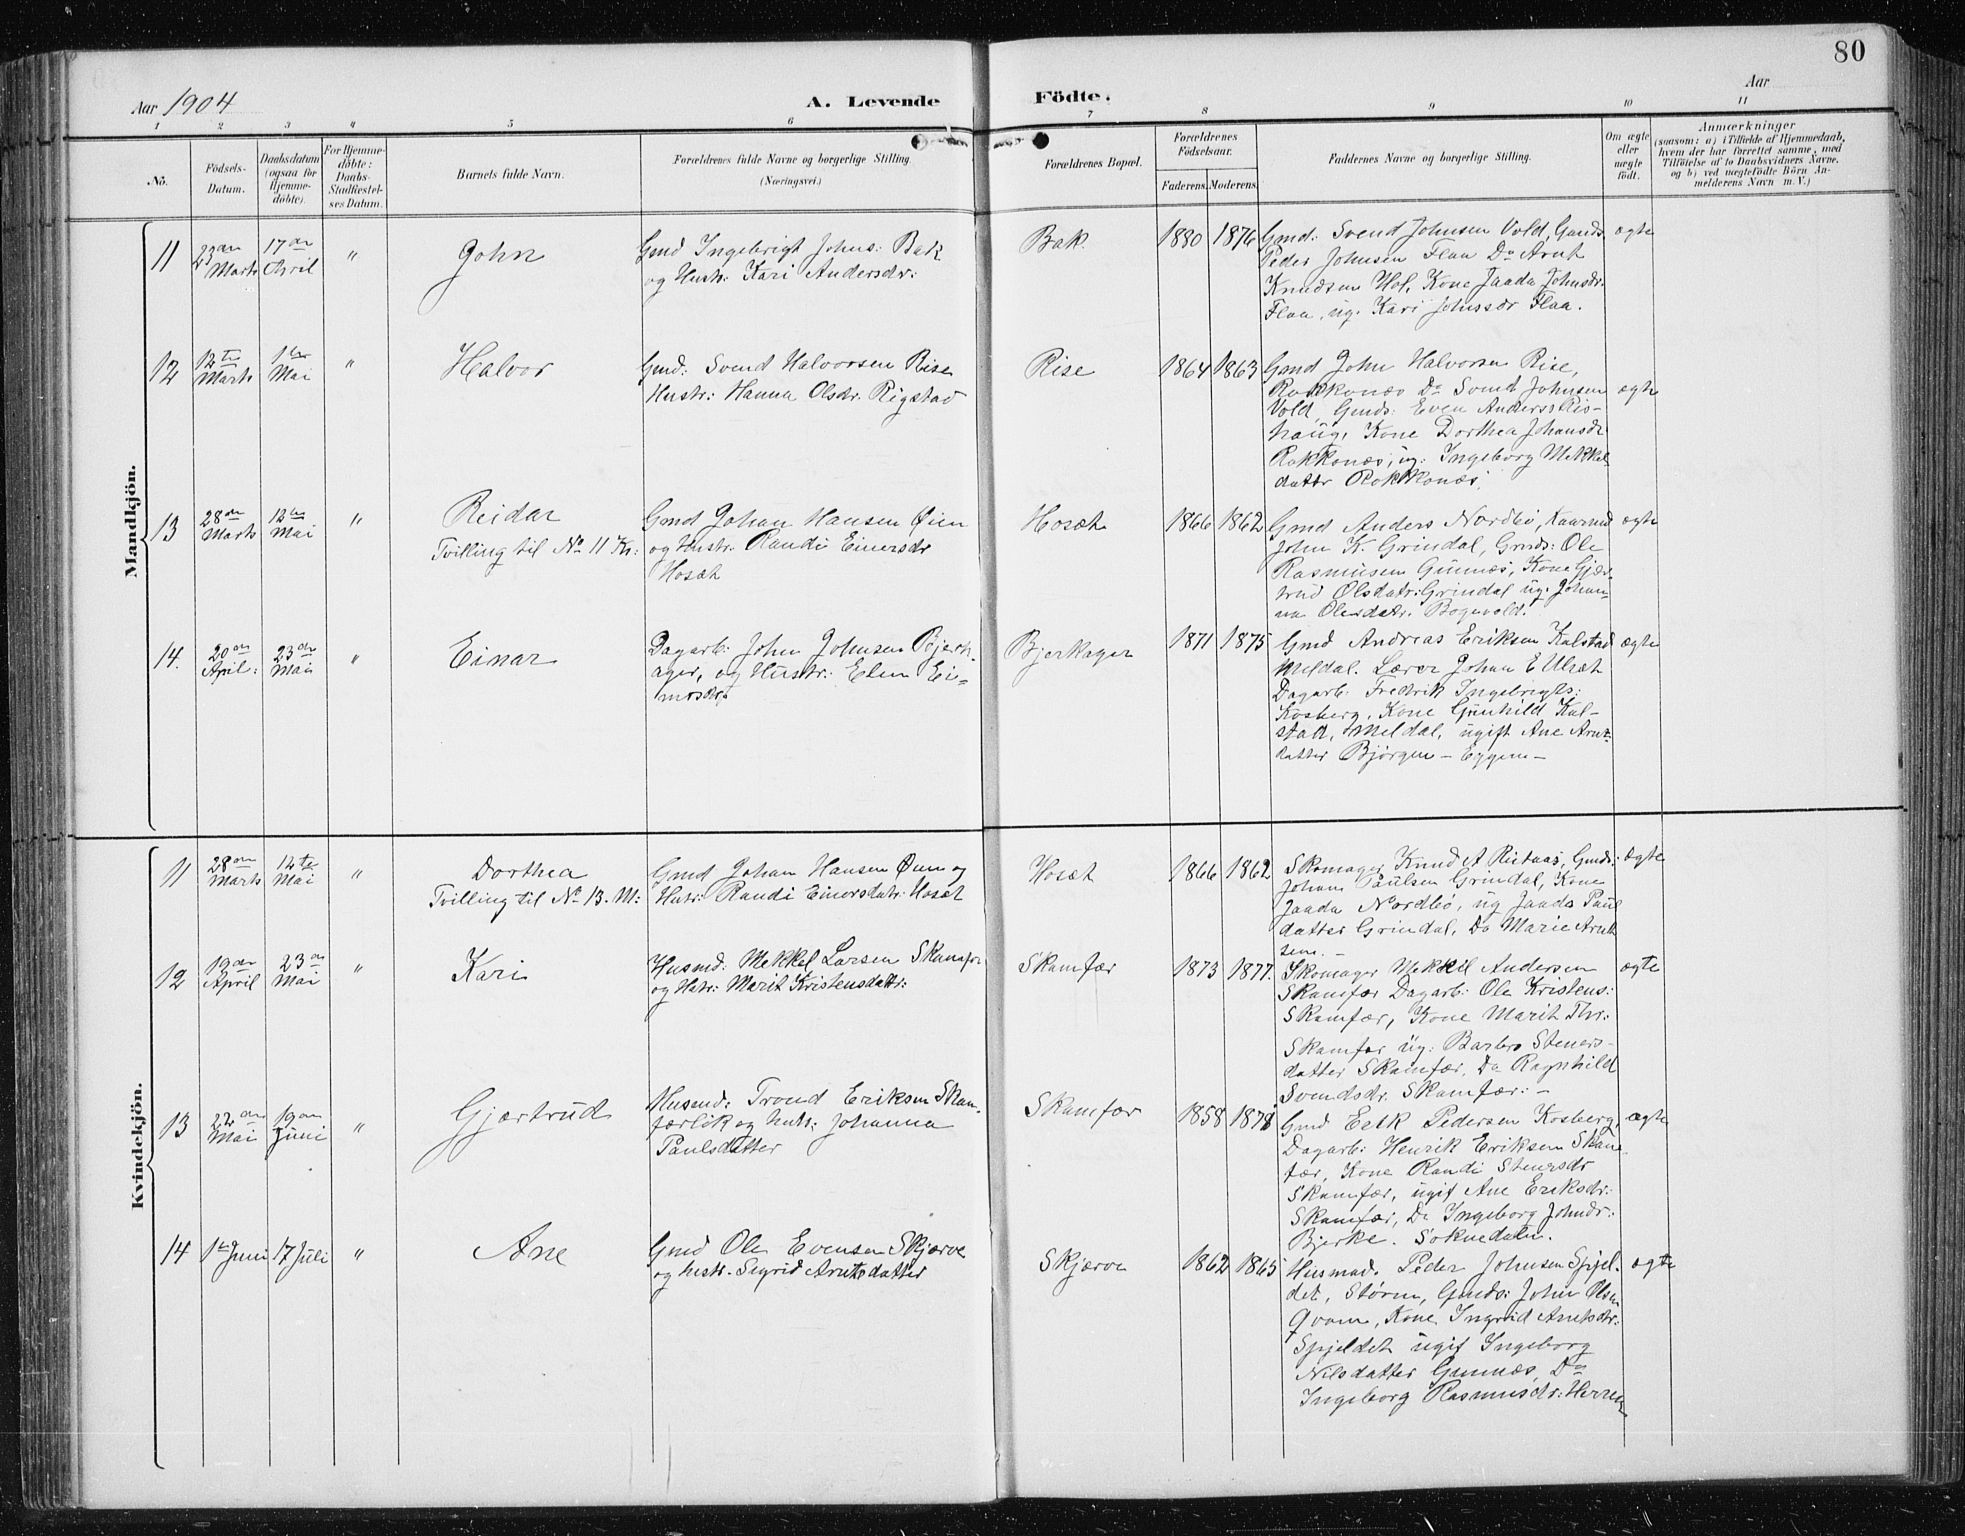 80
Aar 1904
A. Levende Födte.
Aar
1 2 3 4 5 6 7 8 9 10 11
No.
Födsels-Datum.
Daabsdatum (ogsaa for Hjemme-döbte).
For Hjemme-döbte: Daabs-Stadfæstel-ses Datum.
Barnets fulde Navn.
Forældrenes fulde Navne og borgerlige Stilling.
(Næringsvei.)
Forældrenes Bopæl.
Forældrenes Födselsaar.
Faderens. Moderens.
Faddernes Navne og borgerlige Stilling.
Om ægte eller uægte födt.
Anmærkninger
(saasom: a) i Tilfælde af Hjemmedaab,
hvem der har forrettet samme, med
Tilföielse af to Daabsvidners Navne.
og b) ved uægtefödte Börn An-
melderens Navn m. V.)
Mandkjön.
11 23de Marts 17de April " John
Gmd Ingebrigt Johns: Bak
og Hustr: Kari Andersdr:
Bak. 1880 1876
Gmd: Svend Johnsen Vold, Gmds
Peder Johnsen Flaa Do Arnt
Knudsen Hol, Kone Jaada Johnsdr.
Flaa, ug. Kari Johnsdr Flaa.
ægte
12 12te Marts 1ste Mai " Halvor
Gmd: Svend Halvorsen Rise
Hustr: Hanna Olsdr. Rigstad
Rise 1864 1863
Gmd John Halvorsen Rise,
Rokkonæs Do Svend Johnsen
Vold, Gmds: Even Anderss Ris-
haug, Kone Dorthea Johansdr
Rokkonæs, ug: Ingeborg Mekkel
datter Rokkonæs.
ægte
13 28de Marts 12te Mai " Reidar
Tvilling til No 11 Kv:
Gmd Johan Hansen Øien
og Hustr: Randi Einersdr
Hosæt
Hosæt 1866 1862
Gmd Anders Nordbö,
John K. Grindal, Gmds: Ole
Rasmusen Gunnes, Kone Gjær-
trud Olsdatr: Grindal ug: Johan-
na Olesdatr. Bogevold.
ægte
14. 20de April: 23de Mai " Einar
Dagarb: John Johnsen Bjerk-
ager, og Hustr: Elen Ei-
Bjerkager 1871 1875
Gmd Andreas Eriksen Kalstad
Meldal. Lærer Johan E Ulsæt
Dagarb: Fredrik Ingebrigts:
Kosberg, Kone Gunhild Kal-
stad, Meldal, ugift Ane Arnt-
datter Bjørgen - Eggen -
ægte
Kvindekjön.
11 28de Marts 12te Mai " Dorthea
Tvilling til No 13. M:
Gmd Johan Hansen Øien og
Hutr: Randi Einersdatr: Hosæt
Hosæt 1866 1862
Skomager Knud A Ristaas, Gmds:
Johan Paulsen Grindal, Kone
Jaada Nordbö, ug Jaada Paul
datter Grindal, Do Marie Arnt
sen. -
ægte
12 19de April 23de Mai " Kari
Husmd: Mekkel Larsen Skamfær
og Hutr: Marit Kristensdatr:
Skamfær 1873 1877.
Skomager Mekkel Andersen
Skamfær Dagarb: Ole Kristens:
Skamfær, Kone Marit Thr:
Skamfær ug: Barbro Steners-
datter Skamfær, Do Ragnhild
Svendsdr. Skamfær: -
ægte
13 22de Mai 19de Juni " Gjærtrud
Husmd: Trond Eriksen Skam-
færlök og hutr: Johanna
Paulsdatter
Skamfær 1858 1878
Gmd Erik Pedersen Kosberg,
Dagarb: Henrik Eriksen Skam-
fær, Kone Randi Stengsdr
Skamfær, ugif Ane Eriksdr:
Skamfær, Do Ingeborg Johndr:
Bjerke. Soknedalen.
ægte
14 1ste Juni 17 Juli " Ane
Gmd Ole Evensen Skjærve
og hustr. Sigrid Arntsdatter
Skjærve 1862 1865
Husmad. Peder Johnsen Spjel-
det, Støren, Gmds: John Olsen
Qvam, Kone Ingrid Arntsdtr:
Spjeldet ugif Ingeborg
Nilsdatter Gunnæs, Do
Ingeborg Rasmusdr: Herrem
ægte